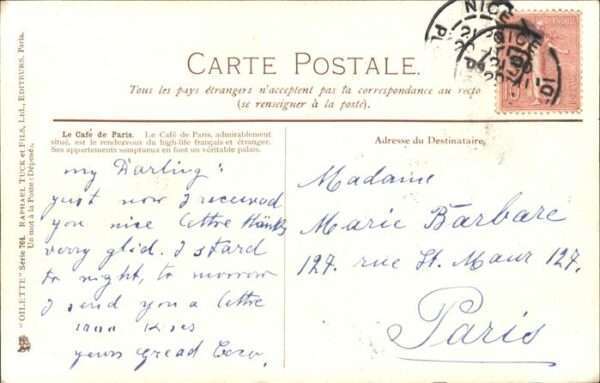 CARTE POSTALE.
Tous les pays étrangers n'acceptent pas la correspondance au recto
(se renseigner à la poste).
NICE
NICE
Le Café de Paris. Le Café de Paris, admirablement
situé, est le rendezvous du high-life français et étranger.
Ses appartements somptueux en font un véritable palais.
my Darling:
just now I received
you nice lettre thanks
verry glid. I stard
to night, to morrow
I send you a lettre
1000 Kises
yours gread
Adresse du Destinataire,
Madame
Marie Barbare
127. rue St. Maur 127.
Paris
"OILETTE" Série 764. RAPHAEL TUCK et FILS, Ltd., EDITEURS, Paris.
Un mot à la Poste: Déposés.